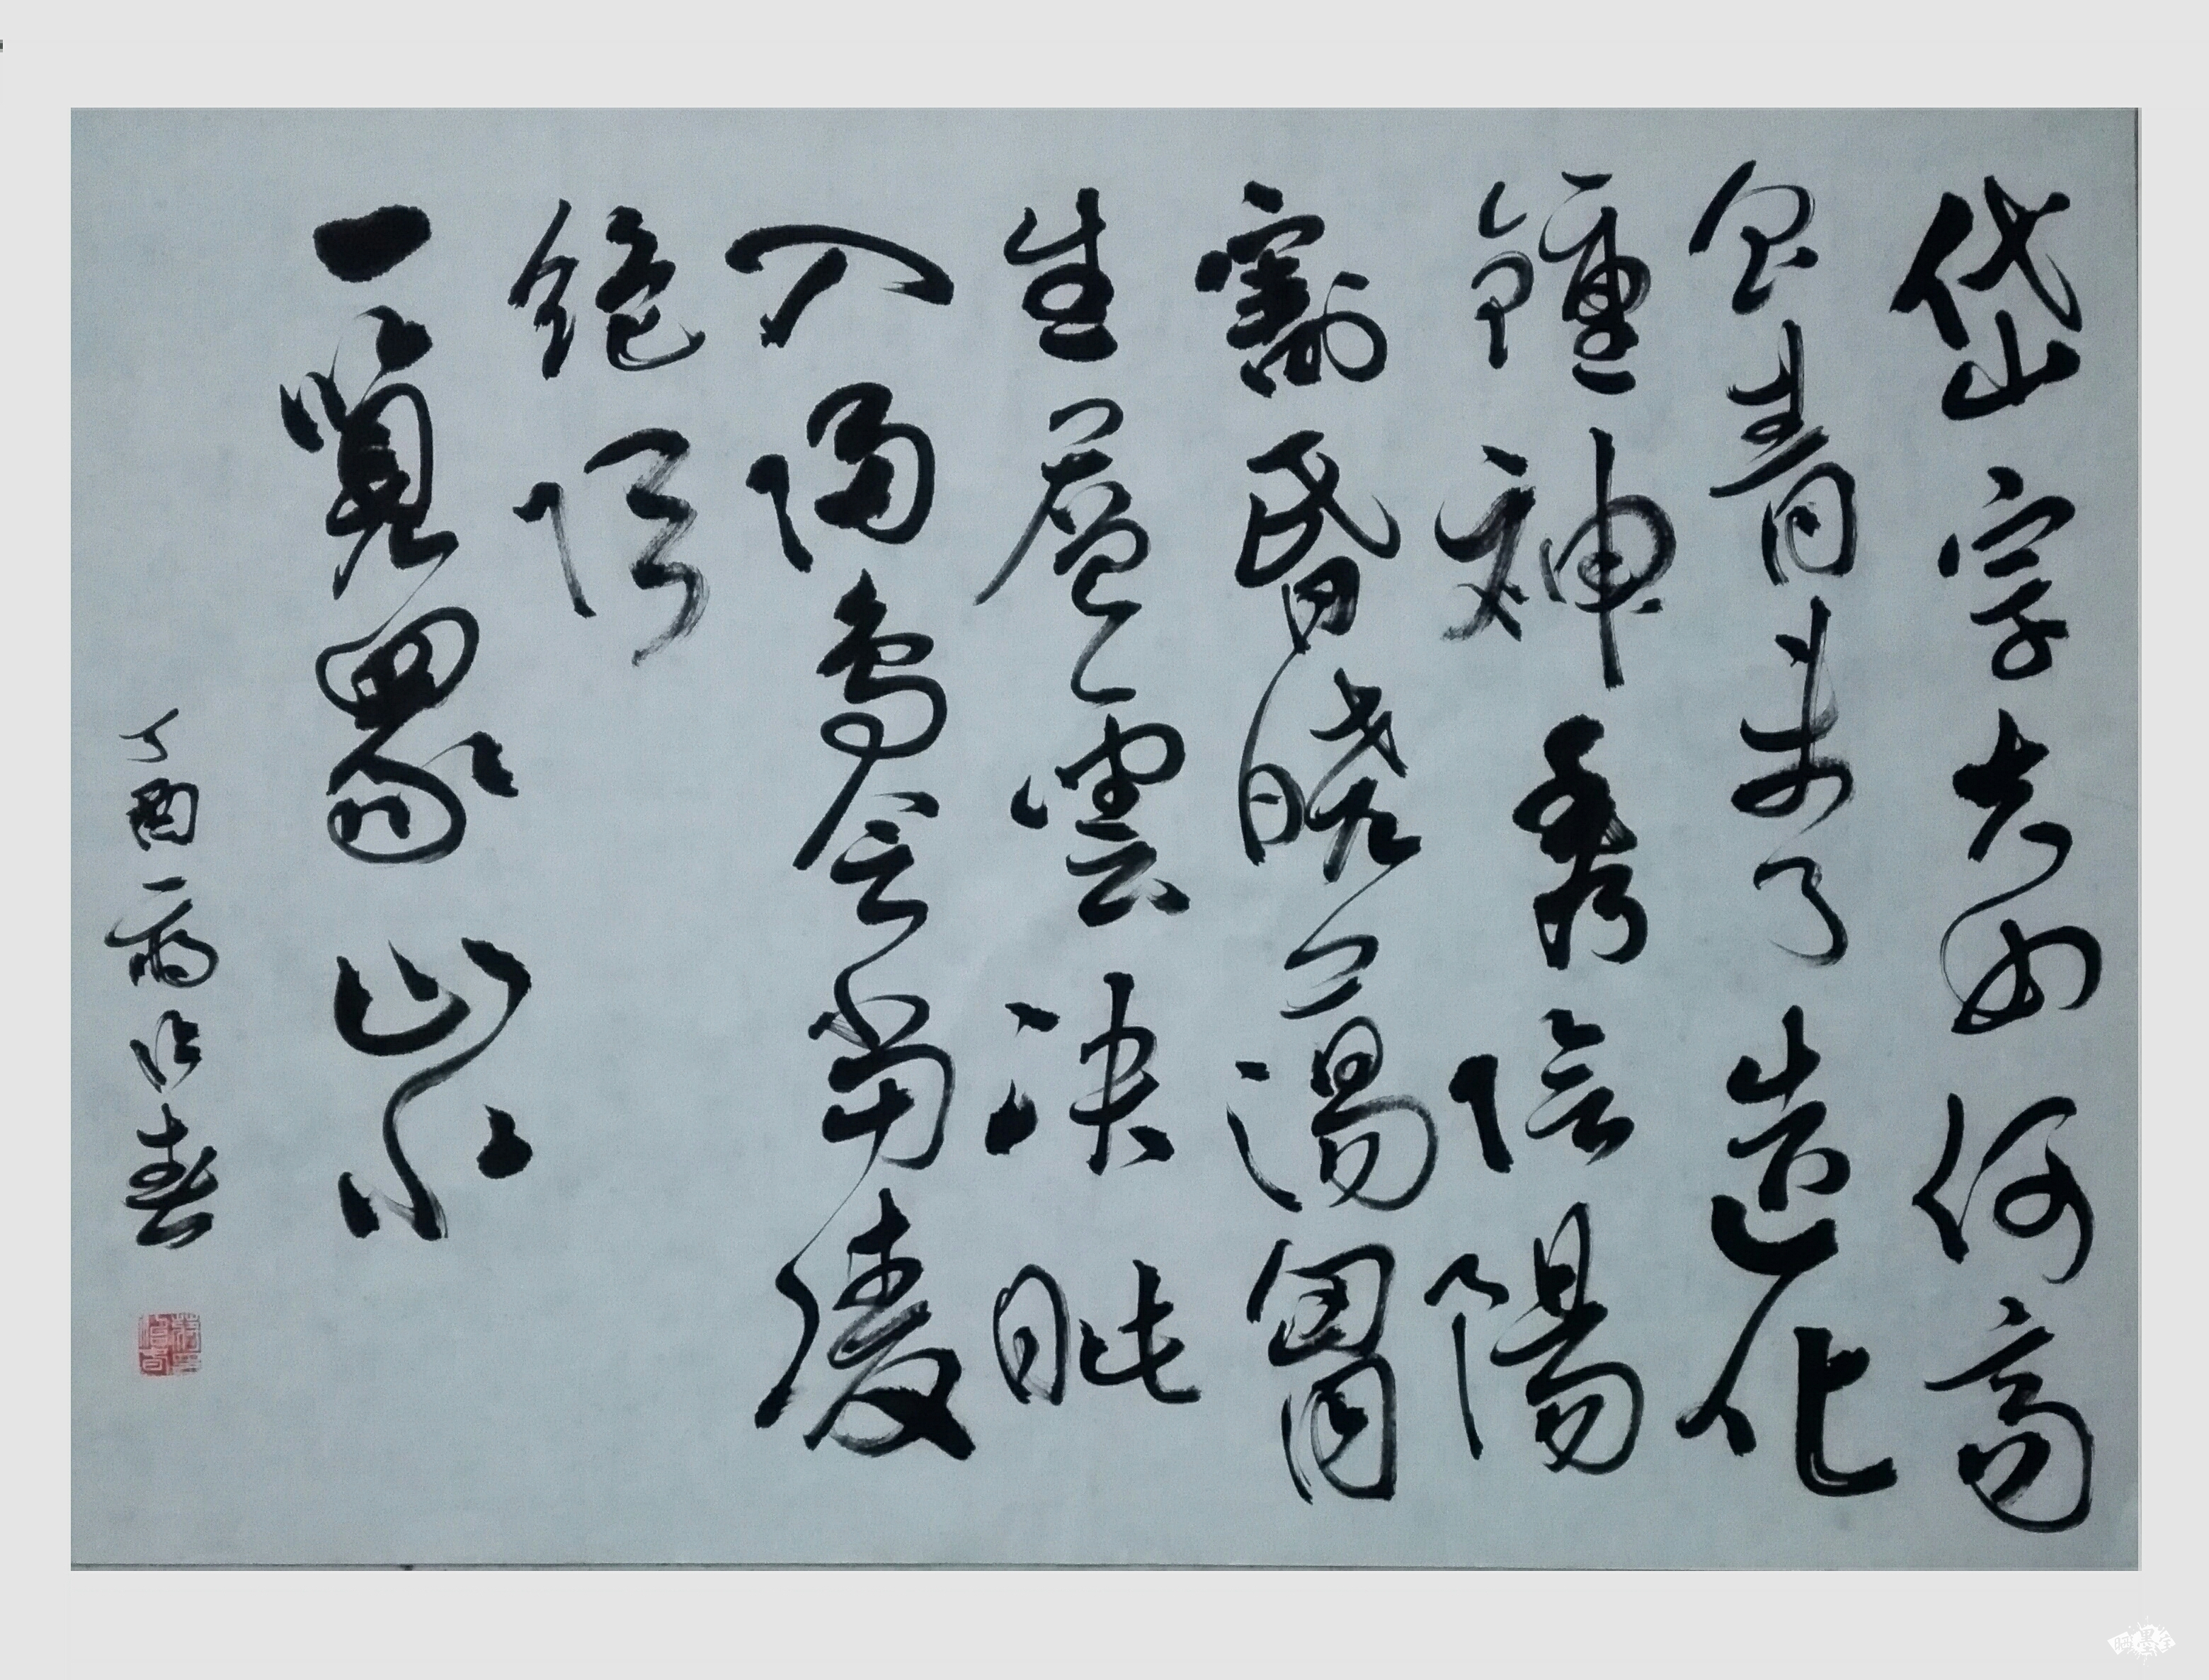 岱宗夫如何齊
魯青未了造化
鍾神秀陰陽
割昏曉蕩胷
生層雲決眦
入歸鳥會當凌
絕頂
一覽眾山小
丁酉 春
晒墨宝